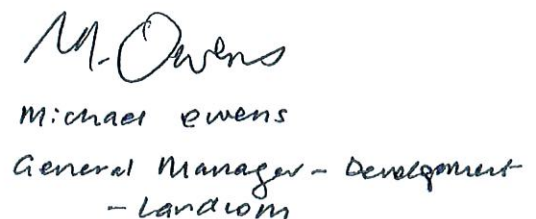 M. Owens
Michael Owens
General Manager - Development
- Landcom